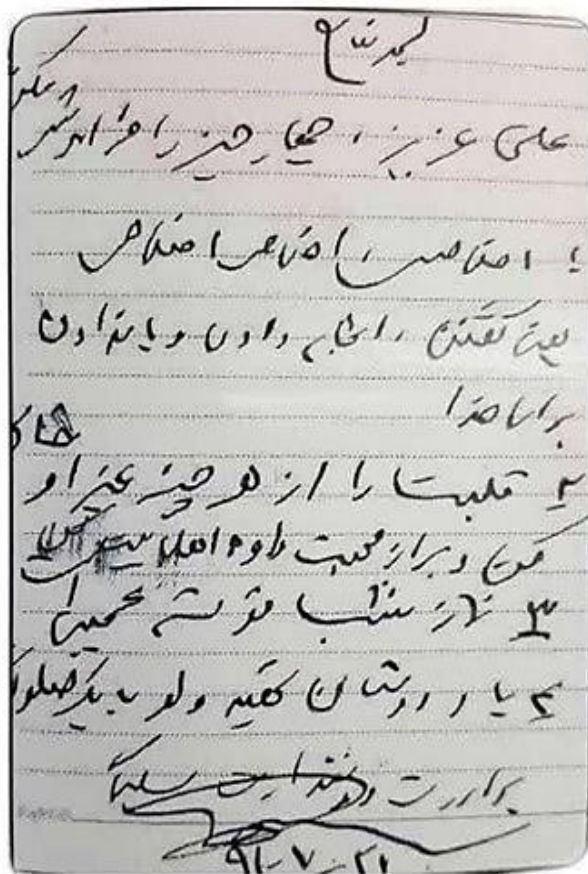 بسمه تعالی
علی عزیز، چهار چیز را فراموش مکن
۱ اخلاص، اخلاص، اخلاص
یعنی گفتن، انجام دادن و یا ندادن
برای خدا
۲ قلبت را از هر چیز غیر او خالی
کن و پر از محبت او و اهل بیت کن
۳ نماز شب توشه عجیبی
۴ یاد دوستان شهید ولو به یک صلوات
برادرت و دوستدارت سلیمانی